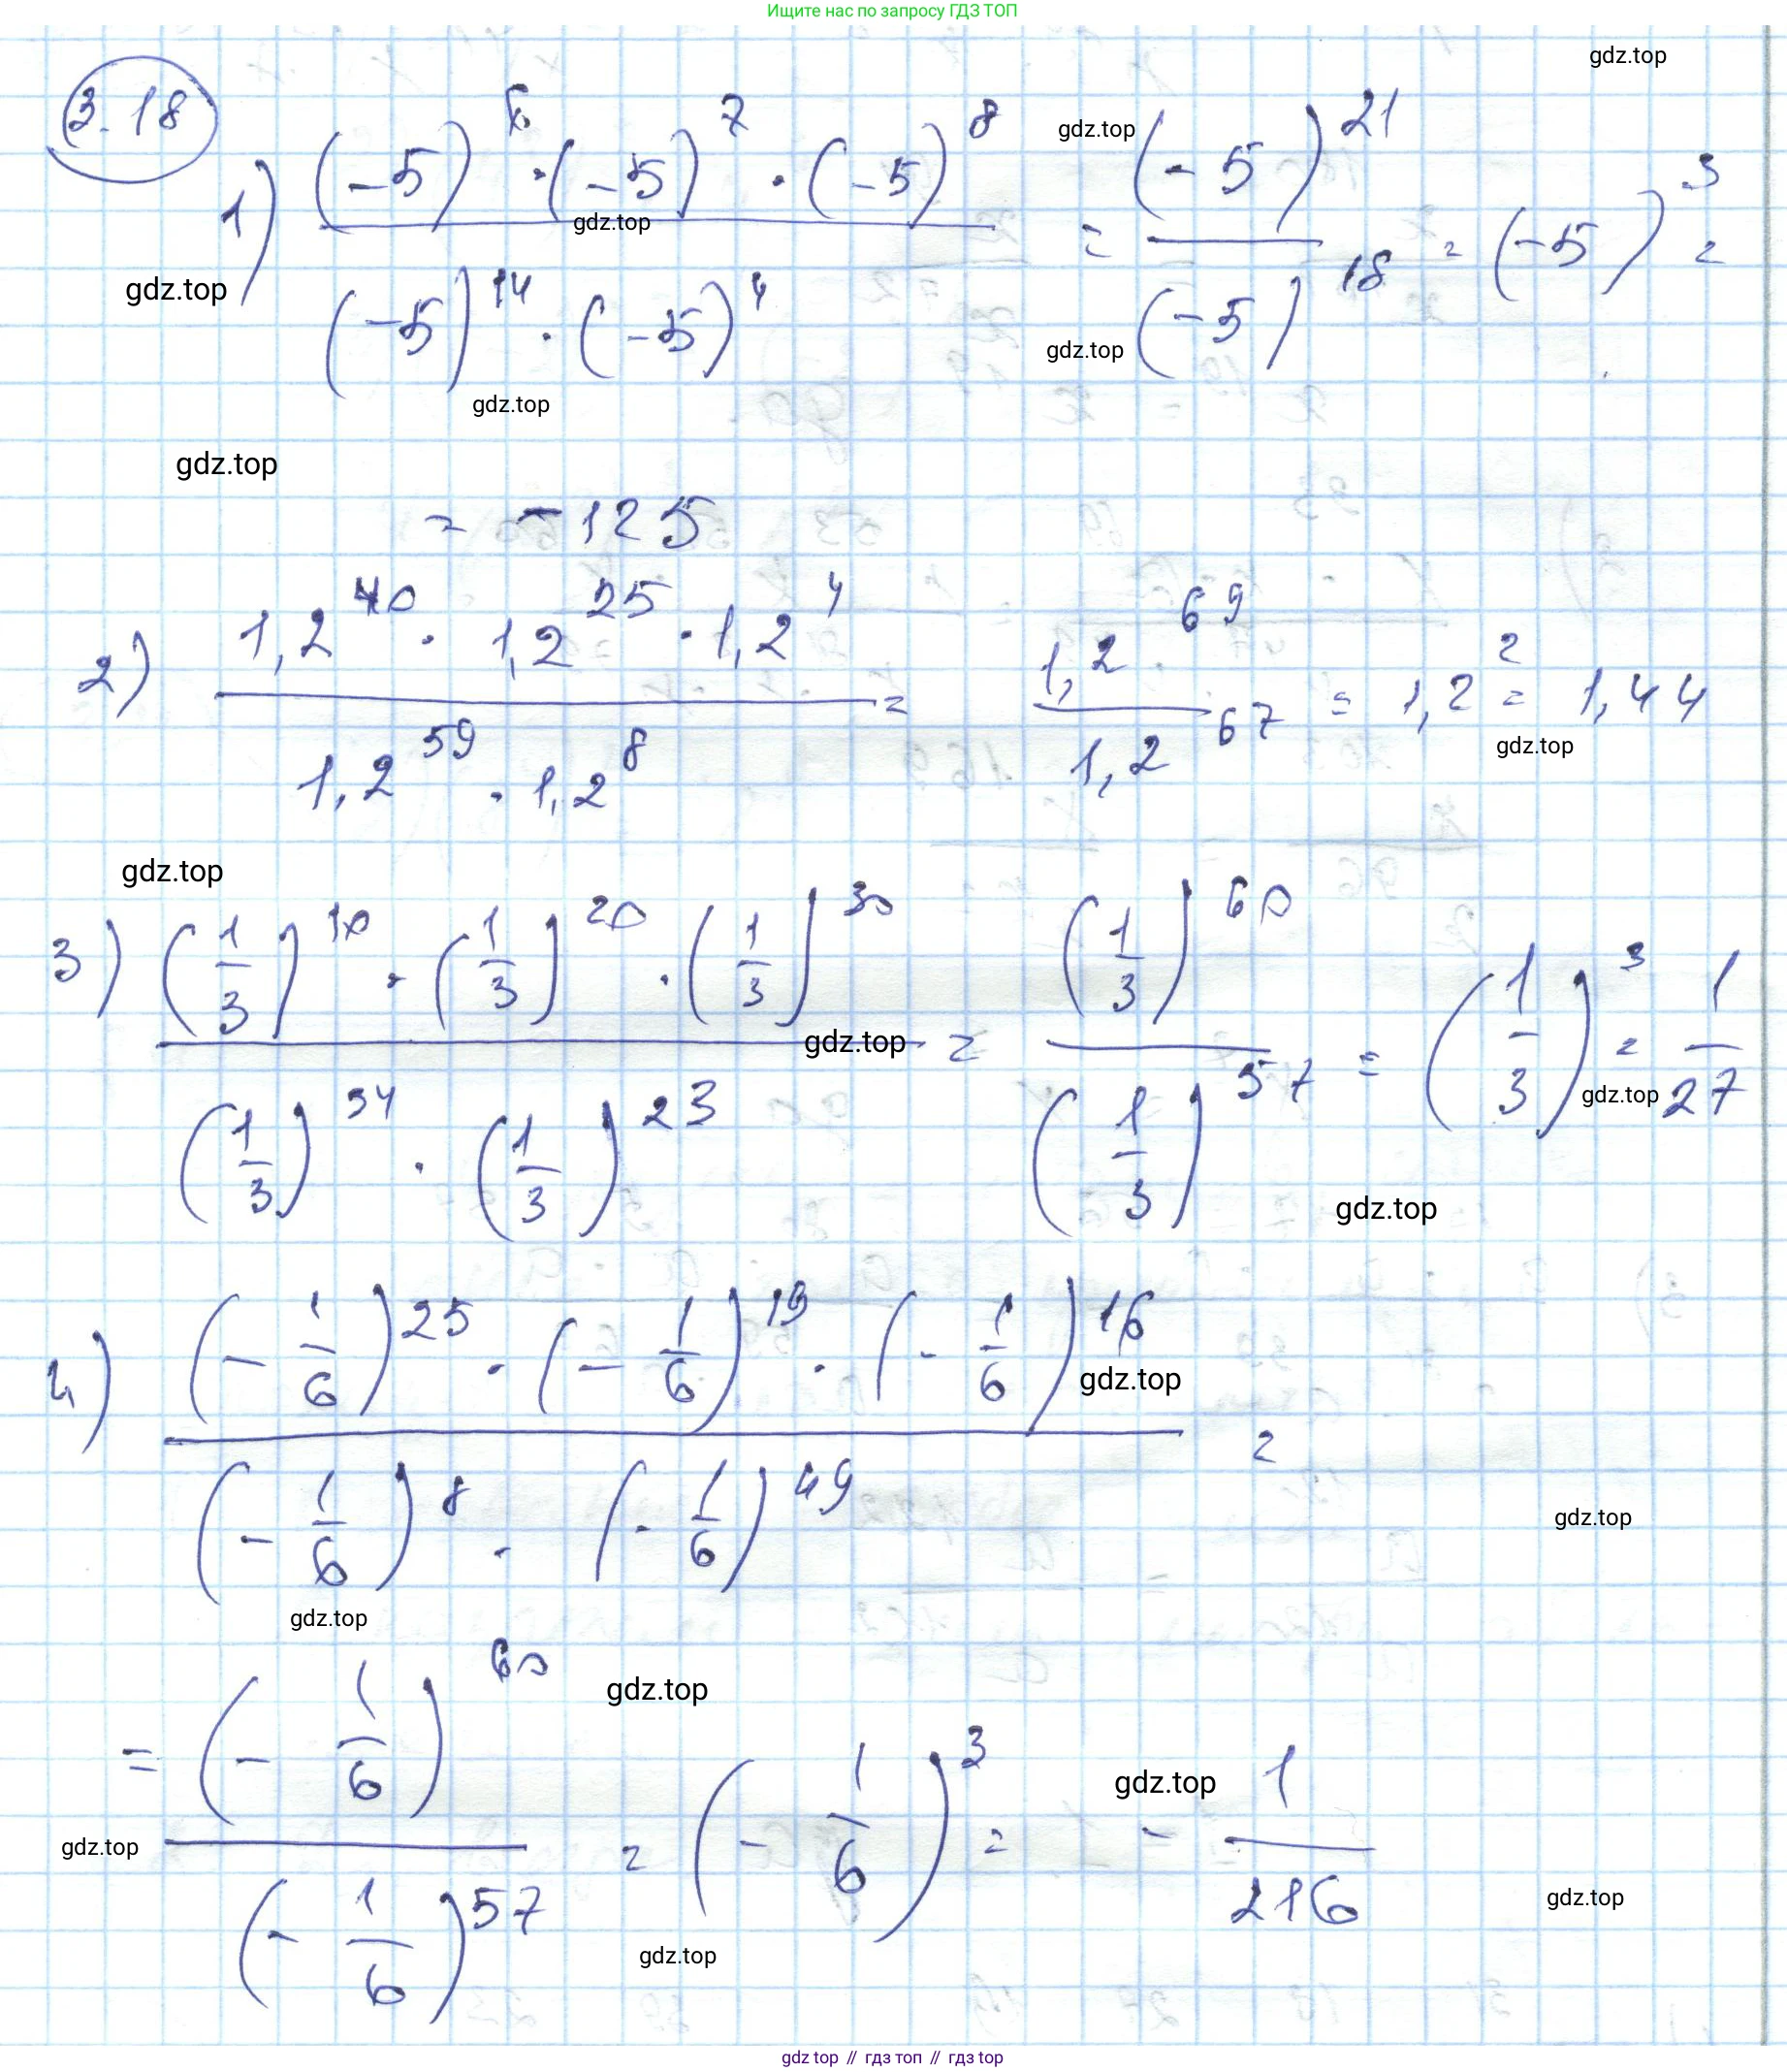 Ищите нас по запросу ГДЗ ТОП
gdz.top
3.18
1) ((-5)^6 · (-5)^7 · (-5)^8) / ((-5)^14 · (-5)^4) = (-5)^21 / (-5)^18 = (-5)^3 =
gdz.top
gdz.top
gdz.top
gdz.top
gdz.top
gdz.top
= -125
2) (1,2^40 · 1,2^25 · 1,2^4) / (1,2^59 · 1,2^8) = 1,2^69 / 1,2^67 = 1,2^2 = 1,44
gdz.top
gdz.top
3) ((1/3)^10 · (1/3)^20 · (1/3)^30) / ((1/3)^34 · (1/3)^23) = (1/3)^60 / (1/3)^57 = (1/3)^3 = 1/27
gdz.top
gdz.top
gdz.top
4) ((-1/6)^25 · (-1/6)^19 · (-1/6)^16) / ((-1/6)^8 · (-1/6)^49) =
gdz.top
gdz.top
gdz.top
= (-1/6)^60 / (-1/6)^57 = (-1/6)^3 = -1/216
gdz.top
gdz.top
gdz.top
gdz.top
gdz.top
gdz top // гдз топ // гдз top